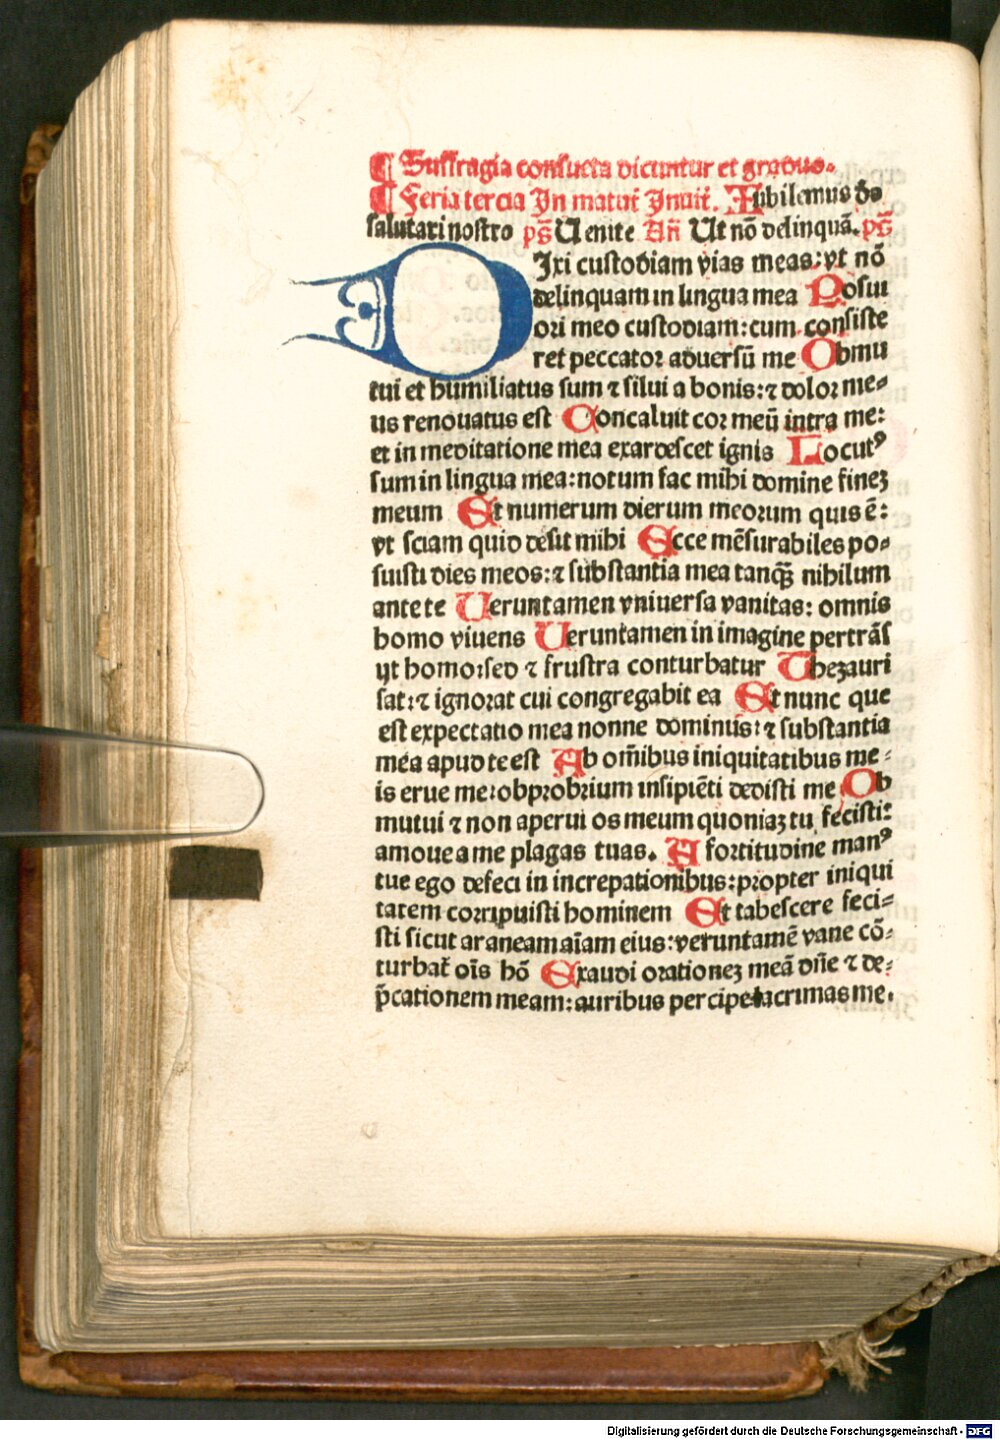 ¶ Suffragia consueta dicuntur et graduo⸗
¶ Feria tercia In matuť Inuiť. Iubilemus do
salutari nostro ps̃ Uenite Añ Ut nõ delinquã. ps̃
Dixi custodiam vias meas: vt nõ
delinquam in lingua mea Posui
ori meo custodiam: cum consiste
ret peccator aduersũ me Obmu
tui et humiliatus sum ⁊ silui a bonis: ⁊ dolor me⸗
us renouatus est Concaluit cor meũ intra me:
et in meditatione mea exardescet ignis Locutꝰ
sum in lingua mea: notum fac mihi domine fineꝫ
meum Et numerum dierum meorum quis ẽ:
vt sciam quid desit mihi Ecce mẽsurabiles po⸗
suisti dies meos: ⁊ substantia mea tanqꝫ̃ nihilum
ante te Ueruntamen vniuersa vanitas: omnis
homo viuens Ueruntamen in imagine pertrãs
ijt homo: sed ⁊ frustra conturbatur Thezauri
sat: ⁊ ignorat cui congregabit ea Et nunc que
est expectatio mea nonne dominus: ⁊ substantia
mea apud te est Ab om̃ibus iniquitatibus me⸗
is erue me: obprobrium insipiẽti dedisti me Ob
mutui ⁊ non aperui os meum quoniaꝫ tu fecisti:
amoue a me plagas tuas. A fortitudine manꝰ
tue ego defeci in increpationibus: propter iniqui
tatem corripuisti hominem Et tabescere feci⸗
sti sicut araneam aĩam eius: veruntamẽ vane cõ⸗
turbať oĩs hõ Exaudi orationeꝫ meã dñe ⁊ de⸗
p̃cationem meam: auribus percipe lacrimas me.
Digitalisierung gefördert durch die Deutsche Forschungsgemeinschaft - DFG